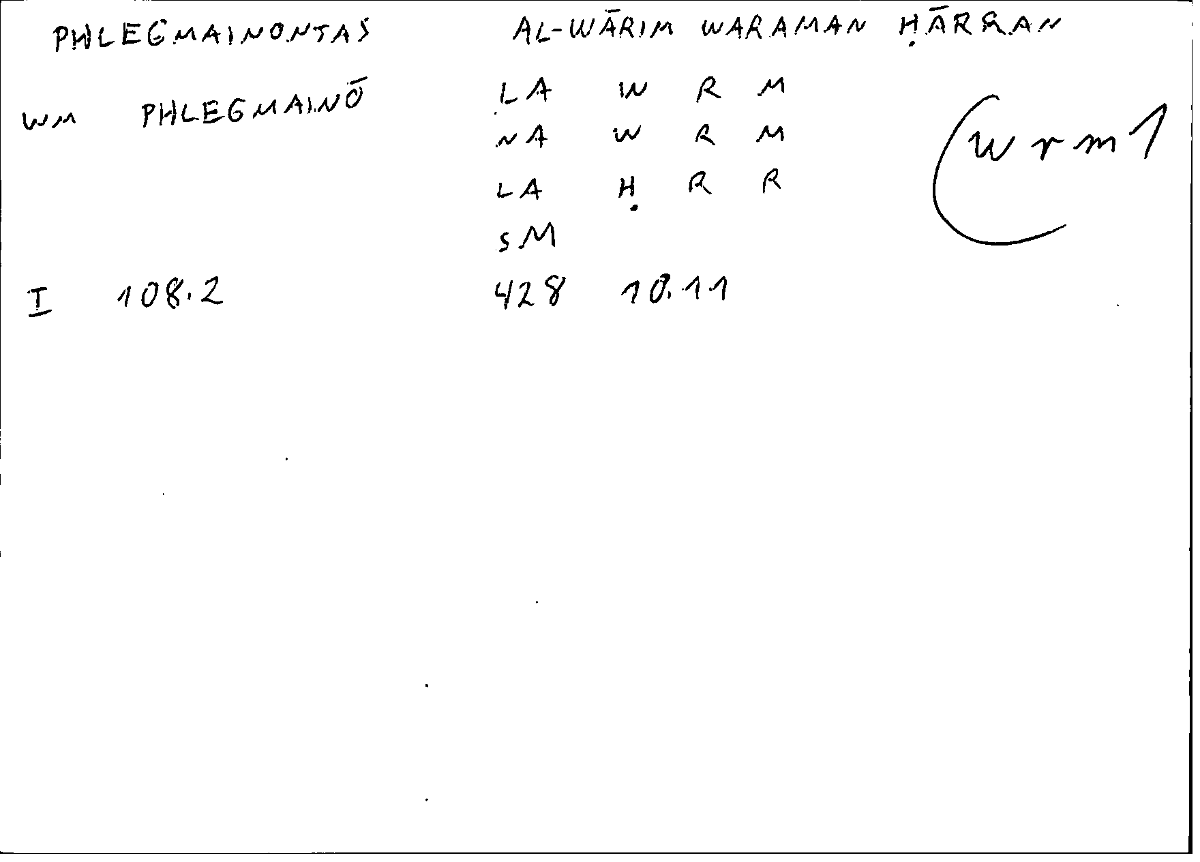 PHLEGMAINONTAS AL-WĀRIM WARAMAN ḤĀRRAN
WM PHLEGMAINŌ LA W R M
NA W R M
(wrm1
LA Ḥ R R
SM
I 108.2 428 10.11